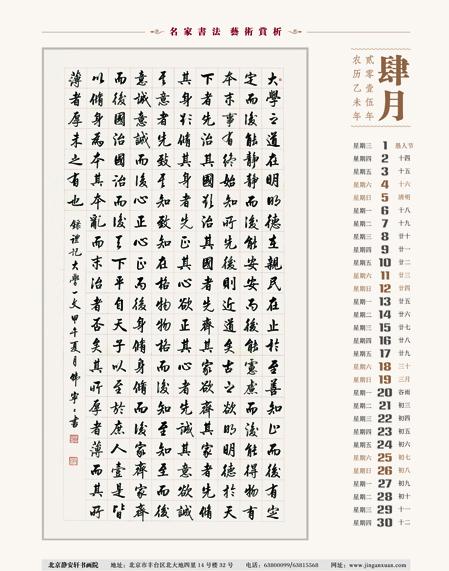 名家書法 藝術賞析
大學之道在明明德在親民在止於至善知止而後有定
定而後能靜靜而後能安安而後能慮慮而後能得物有
本末事有終始知所先後則近道矣古之欲明明德於天
下者先治其國欲治其國者先齊其家欲齊其家者先脩
其身欲脩其身者先正其心欲正其心者先誠其意欲誠
其意者先致其知致知在格物物格而後知至知至而後
意誠意誠而後心正心正而後身脩身脩而後家齊家齊
而後國治國治而後天下平自天子以至於庶人壹是皆
以脩身為本其本亂而末治者否矣其所厚者薄而其所
薄者厚未之有也
錄禮記大學一文甲午夏月佛寧書
肆月
贰零壹伍年
农历乙未年
星期三 1 愚人节
星期四 2 十四
星期五 3 十五
星期六 4 十六
星期日 5 清明
星期一 6 十八
星期二 7 十九
星期三 8 二十
星期四 9 廿一
星期五 10 廿二
星期六 11 廿三
星期日 12 廿四
星期一 13 廿五
星期二 14 廿六
星期三 15 廿七
星期四 16 廿八
星期五 17 廿九
星期六 18 三十
星期日 19 三月
星期一 20 谷雨
星期二 21 初三
星期三 22 初四
星期四 23 初五
星期五 24 初六
星期六 25 初七
星期日 26 初八
星期一 27 初九
星期二 28 初十
星期三 29 十一
星期四 30 十二
北京静安轩书画院 地址：北京市丰台区北大地四里14号楼32号 电话：63800099/63815568 网址：www.jinganxuan.com